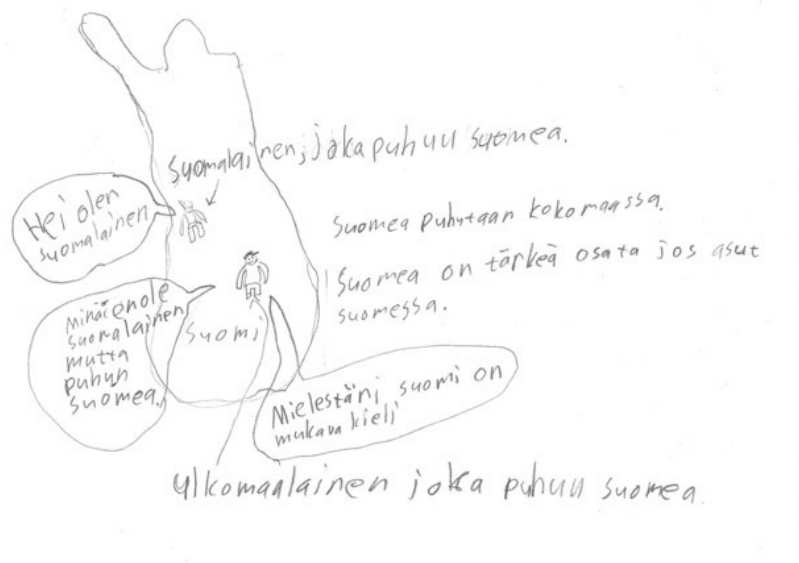 Suomalainen, joka puhuu suomea.
Hei olen
suomalainen
Suomea puhutaan kokomaassa.
Suomea on tärkeä osata jos asut
suomessa.
Minäenole
suomalainen
mutta
puhun
suomea.
Suomi
Mielestäni suomi on
mukava kieli
Ulkomaalainen joka puhuu suomea.